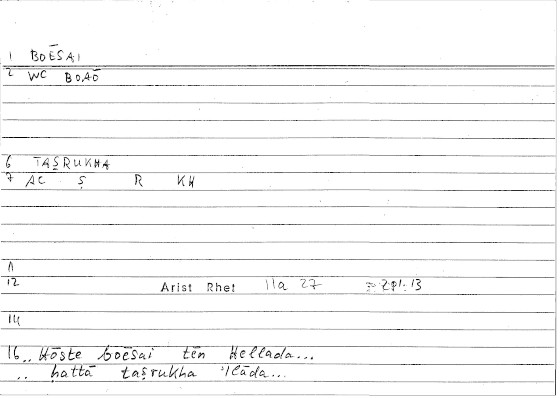 1 BOĒSAI
2 WC BOAŌ
6 TAṢRUKHA
7 AC Ṣ R KH
11
12 Arist Rhet 11a 27
14
16 .. Hōste boēsai tēn Hellada...
.. ḥattā taṣrukha 'lāda...